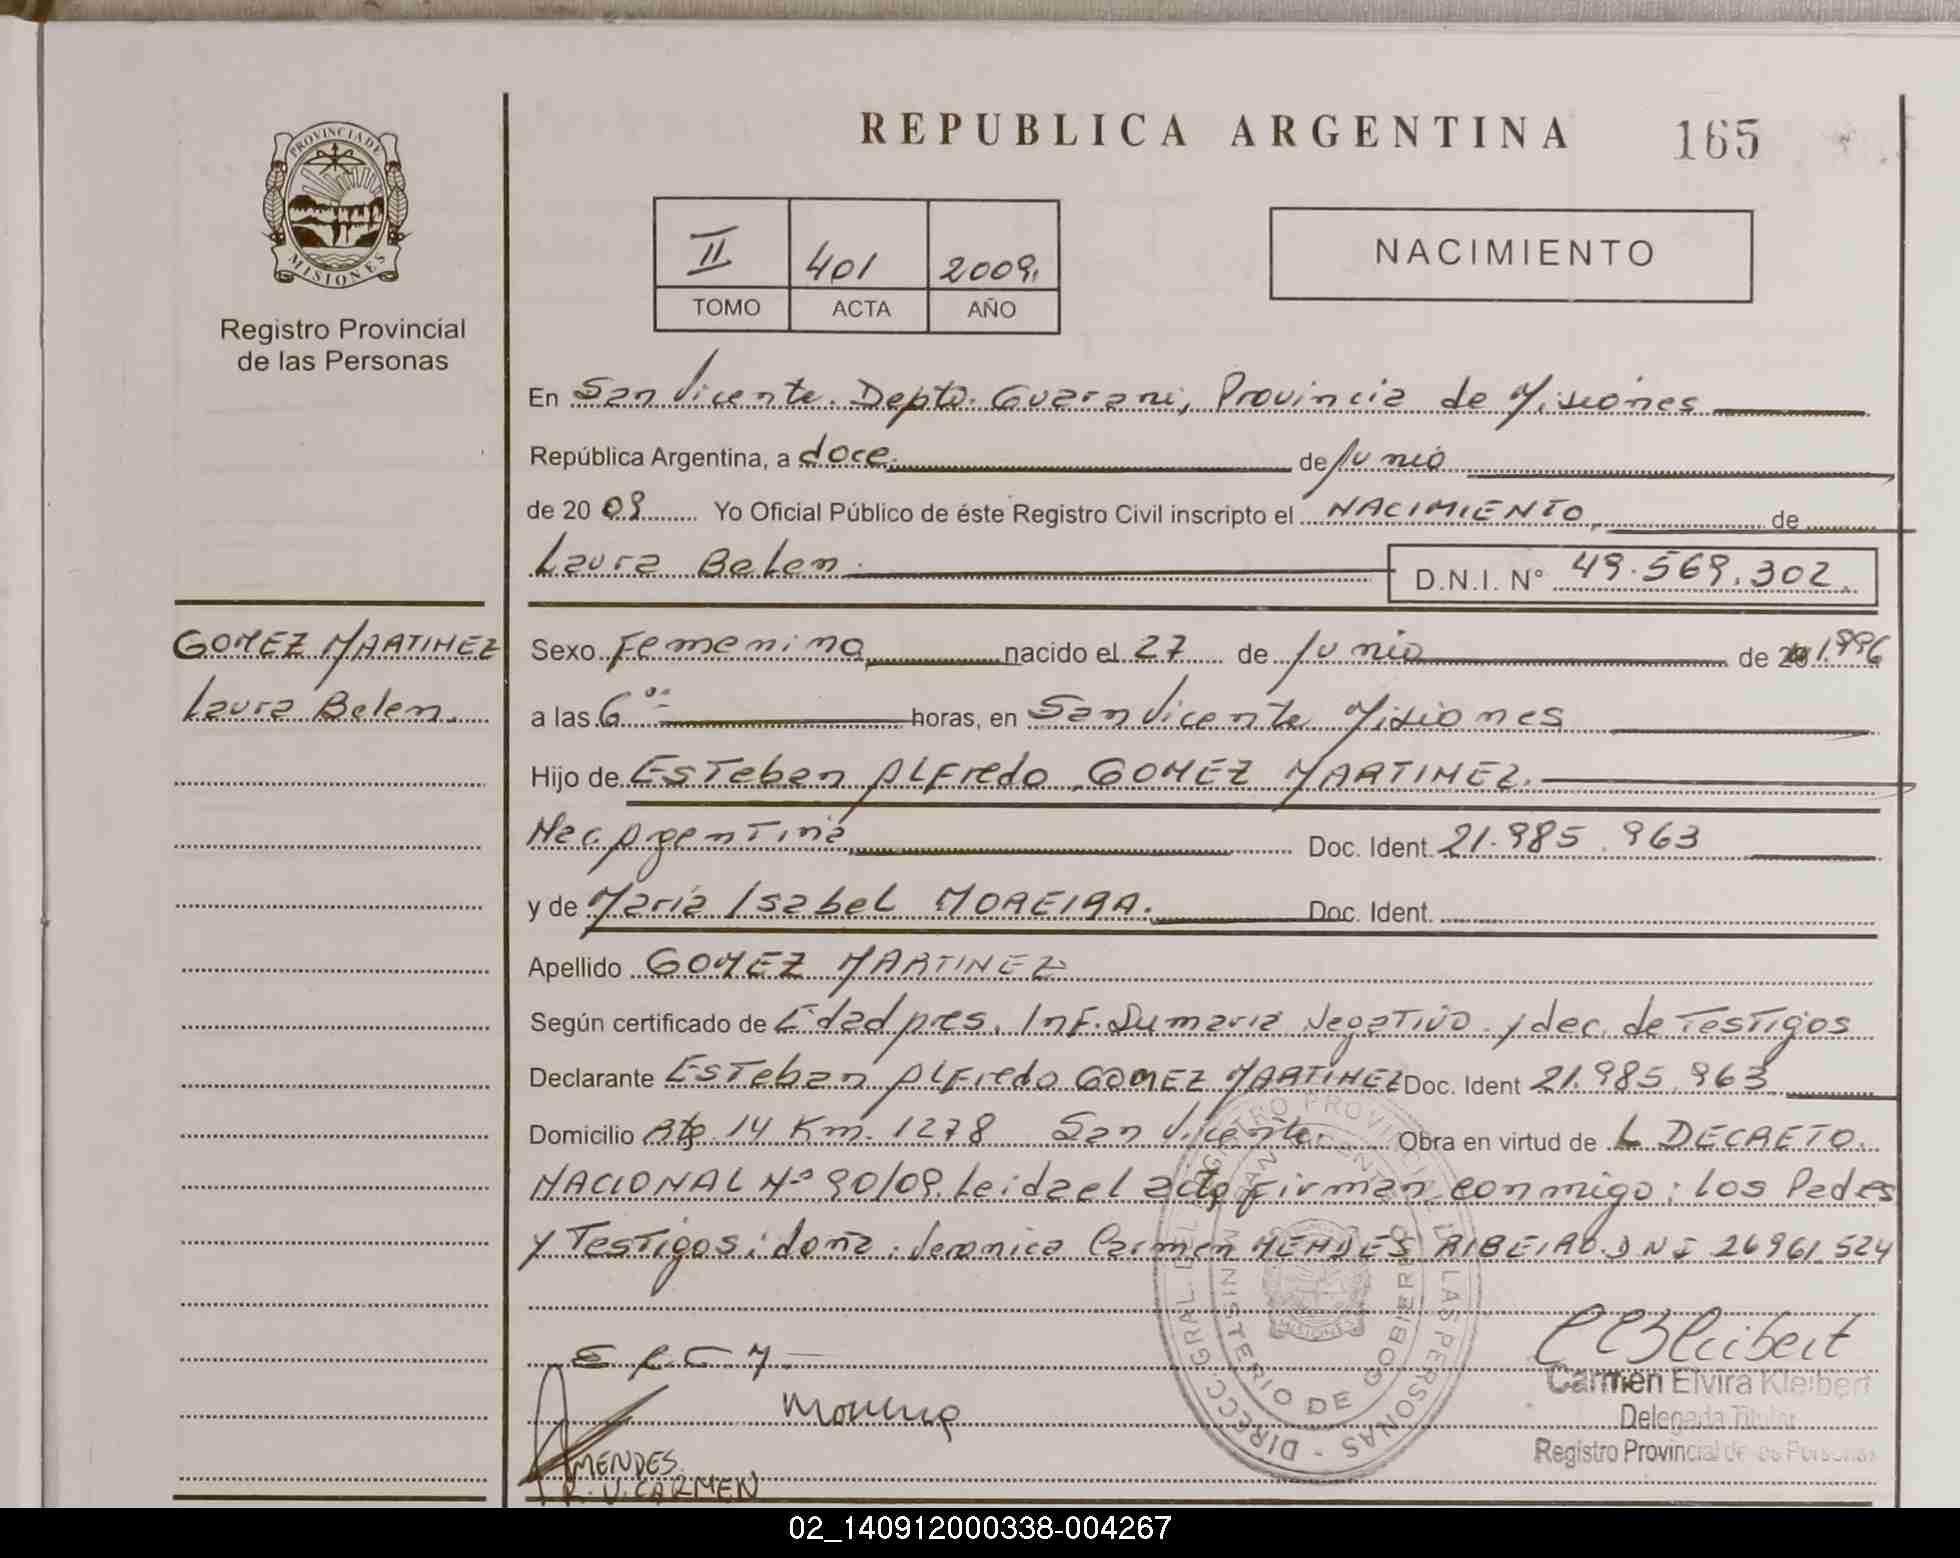 REPUBLICA ARGENTINA 165
PROVINCIA DE
MISIONES
Registro Provincial
de las Personas
II 401 2009
TOMO ACTA AÑO
NACIMIENTO
En San Vicente. Depto. Guarani, Provincia de Misiones
República Argentina, a doce de Junio
de 20 09 Yo Oficial Público de éste Registro Civil inscripto el NACIMIENTO de
Laura Belen. D.N.I. N° 49.569.302.
GOMEZ MARTINEZ
Laura Belen.
Sexo Femenino nacido el 27 de Junio de 1.996
a las 6 horas, en San Vicente Misiones
Hijo de Esteban Alfredo GOMEZ MARTINEZ.
Nac. Argentina Doc. Ident. 21.985.963
y de Maria Isabel MOREIRA. Doc. Ident.
Apellido GOMEZ MARTINEZ
Según certificado de Edad pres. Inf. Sumaria Negativo y dec. de Testigos
Declarante Esteban Alfredo GOMEZ MARTINEZ Doc. Ident 21.985.963
Domicilio 14 Km. 1278 San Vicente. Obra en virtud de L DECRETO.
NACIONAL Nº 90/09. Leida el acta firman conmigo: los Padres
y Testigos: doña: Veronica Carmen MENDES RIBEIRO. DNI 26961.524
DIRECC. GRAL. DEL REGISTRO PROVINCIAL DE LAS PERSONAS
MINISTERIO DE GOBIERNO
SAN VICENTE
MISIONES
Carmen Elvira Kleibert
Delegada Titular
Registro Provincial de las Personas
E G M
Moreira
MENDES.
R. V. CARMEN
02_140912000338-004267